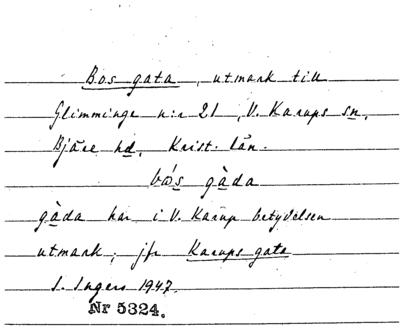 Bos gata, utmark till
Glimminge n:r 21, V. Karups sn,
Bjäre hd, Krist. län.
bós gàda
gàda har i V. Karup betydelsen
utmark; jfr Karups gata
S. Ingers 1947.
Nr 5324.